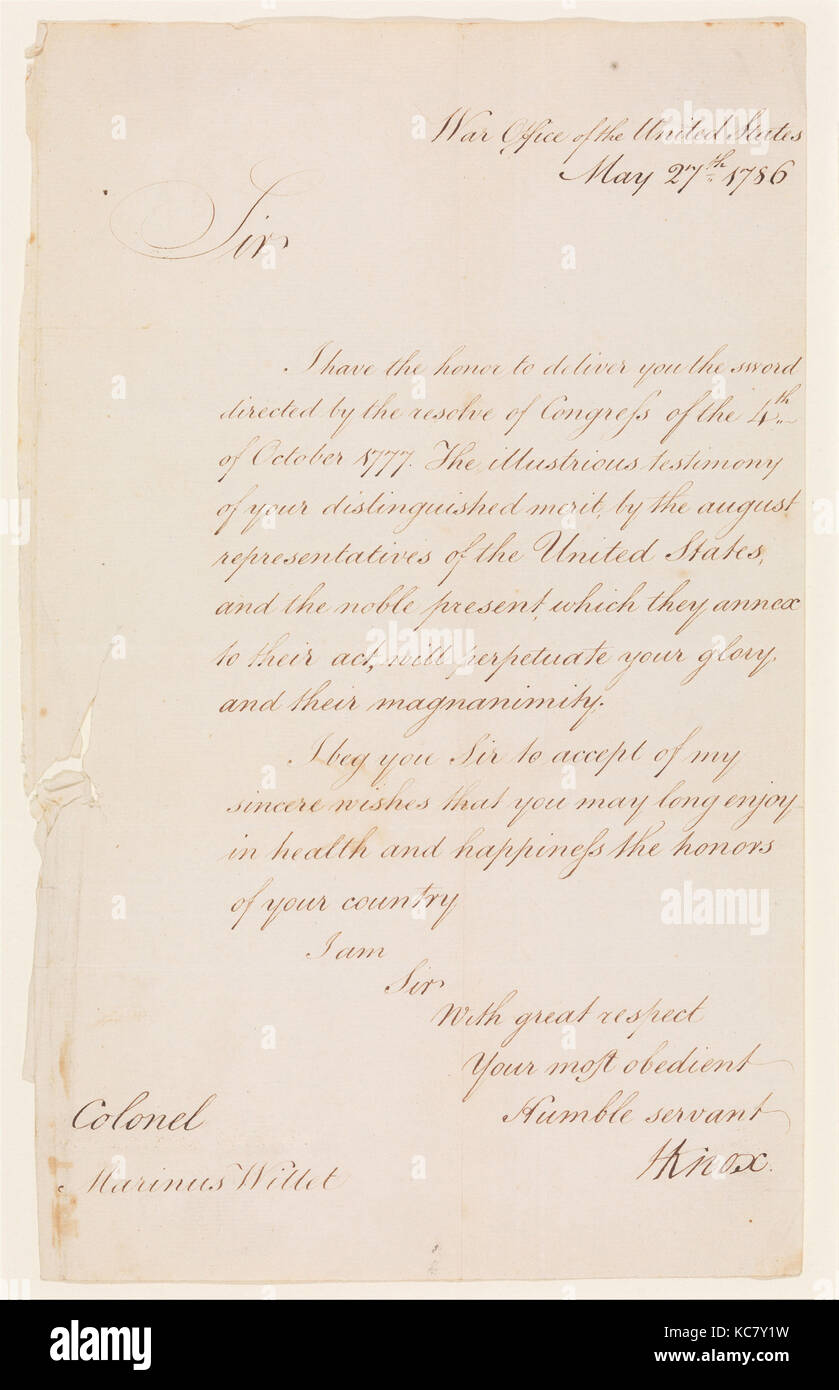 War Office of the United States
May 27th 1786
Sir
I have the honor to deliver you the sword
directed by the resolve of Congreſs of the 4th
of October 1777. The illustrious testimony
of your distinguished merit, by the august
representatives of the United States,
and the noble present, which they annex
to their act, will perpetuate your glory,
and their magnanimity.
I beg you Sir to accept of my
sincere wishes that you may long enjoy
in health and happineſs the honors
of your country
I am
Sir
With great respect
Your moſt obedient
Humble servant
HKnox.
Colonel
Marinus Willet
alamy
alamy
alamy
alamy
a
alamy stock photo
Image ID: KC7Y1W
www.alamy.com